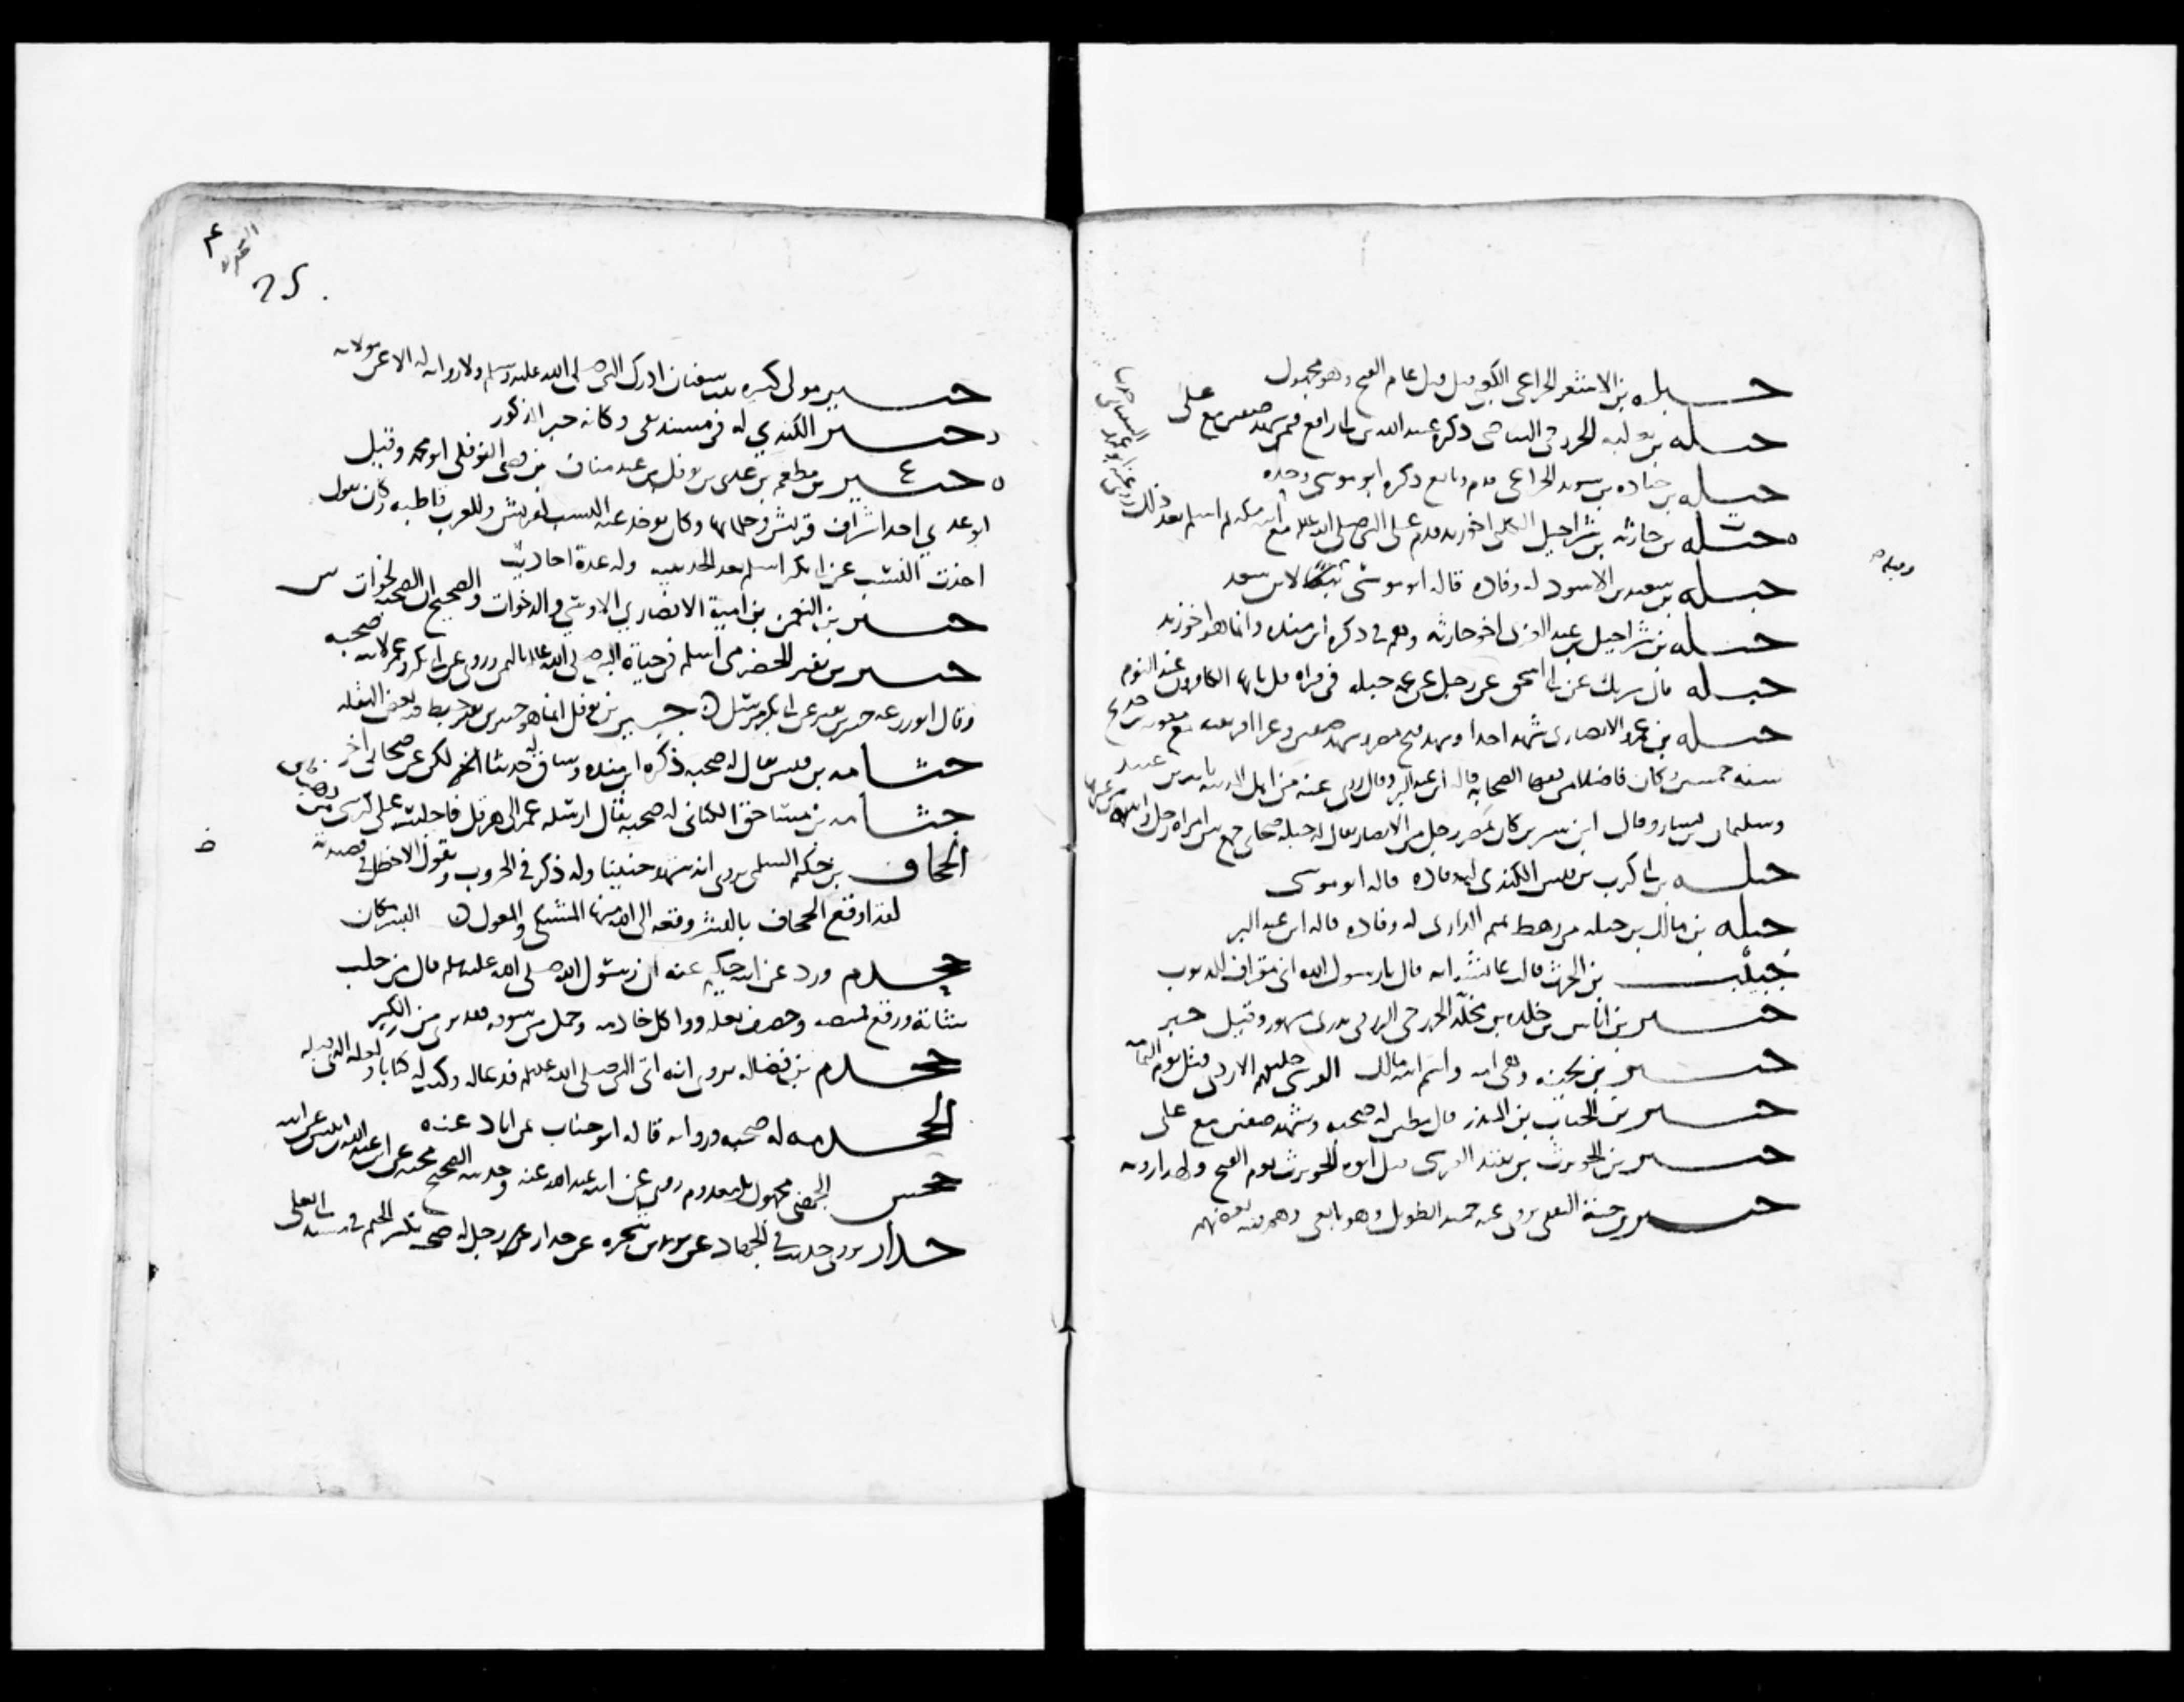 جبله بن الاشعر الخزاعي الكعبي قيل قتل عام الفتح وهو مجهول
جبله بن ثعلبه الخزرجي البياضي ذكره عبيد الله بن ابي رافع فيمن شهد صفين مع علي
جبله بن جناده بن سويد الخزاعي قدم وبايع ذكره ابو موسى وحده
جبله بن حارثه بن شراحيل الكلبي اخو زيد قدم على النبي صلى الله عليه مع ابيه مكه ثم اسلم بعد ذلك
جبله بن سعيد بن الاسود له وفاده قاله ابو موسى تبعًا لابن سعد
جبله بن شراحيل بن عبد العزى اخو حارثه وهم في ذكره ابن منده وانما هو اخو زيد
جبله قال شريك عن ابي اسحق عن رجل عن عمه جبله في قراه قل يا ايها الكافرون عند النوم
جبله بن عمرو الانصاري شهد احدا وشهد فتح مصر وشهد صفين وغزا افريقيه مع معويه بن حديج
سنه خمسين وكان فاضلا من فقها الصحابه قاله ابن عبد البر وقال روى عنه من اهل المدينه ثابت بن عبيد
وسليمان بن يسار وقال ابن سيرين كان بمصر رجل من الانصار يقال له جبله صحابي جمع بين امراه رجل وابنته
جبله بن ابي كرب بن قيس الكندي له وفاده قاله ابو موسى
جبله بن مالك بن جبله من رهط تميم الداري له وفاده قاله ابن عبد البر
جبيب بن الحرث قالت عائشه انه قال يا رسول الله اني مقراف للذنوب
جبير بن اياس بن خلده بن مخلد الخزرجي الزرقي بدري مشهور وقيل جبر
جبير بن بحينه وهي امه واسم ابيه مالك القرشي حليفهم الازدي قتل يوم اليمامه
جبير بن الحباب بن المنذر قال مطين له صحبه وشهد صفين مع علي
جبير بن الحويرث بن نقيد القرشي قتل ابوه الحويرث يوم الفتح ولهذا رويه
جبير بن حية الثقفي يروى عنه حميد الطويل وهو تابعي وهم فيه بعضهم
25
جبير مولى كبيره بنت سفيان ادرك النبي صلى الله عليه وسلم ولا روايه له الا عن مولاته
جبير الكندي له في مسند بقي وكانه جبر المذكور
جبير بن مطعم بن عدي بن نوفل بن عبد مناف بن قصي النوفلي ابو محمد وقيل
ابو عدي احد اشراف قريش وحلمائها وكان يوخذ عنه النسب لقريش وللعرب قاطبه وكان يقول
اخذت النسب عن ابي بكر اسلم بعد الحديبيه وله عدة احاديث
جبير بن النعمن بن امية الانصاري الاوسي والد خوات والصحيح ان الصحبة لخوات
جبير بن نفير الحضرمي اسلم في حياة النبي صلى الله عليه باليمن وروى عن ابي بكر وعمر لابيه صحبه
وقال ابو زرعه جبير بن نفير عن ابي بكر مرسل جبير بن نوفل انما هو جبير بن نفير خبط فيه بعض النقله
جثامه بن قيس يقال له صحبه ذكره ابن منده وساق له حديثا لكن عن صحابي اخر
جثامه بن مساحق الكناني له صحبه يقال ارسله عمر الى هرقل فاجلسه على كرسي من ذهب
الجحاف بن حكيم السلمي يروى انه شهد حنينا وله ذكر في الحروب ويقول الاخطل في قصيدته
لقد اوقع الجحاف بالبشر وقعه الى الله منها المشتكى والمعول البشر مكان
جحدم ورد عن ابنه حكيم عنه ان رسول الله صلى الله عليه وسلم قال من حلب
شاته ورقع قميصه وخصف نعله وواكل خادمه وحمل من سوقه فقد برى من الكبر
جحدم بن فضاله يروى انه اتى النبي صلى الله عليه وسلم فدعا له وكتب له كتابا ولعله الذي قبله
الجحدمه له صحبه وروايه قاله ابو جناب عن اياد عنه
جحش الجهني مجهول روى عن ابنه عبد الله عنه وحديثه الصحيح
جدار يروى حديث في الجهاد عن يزيد بن شجره عن جدار عن رجل له صحبه